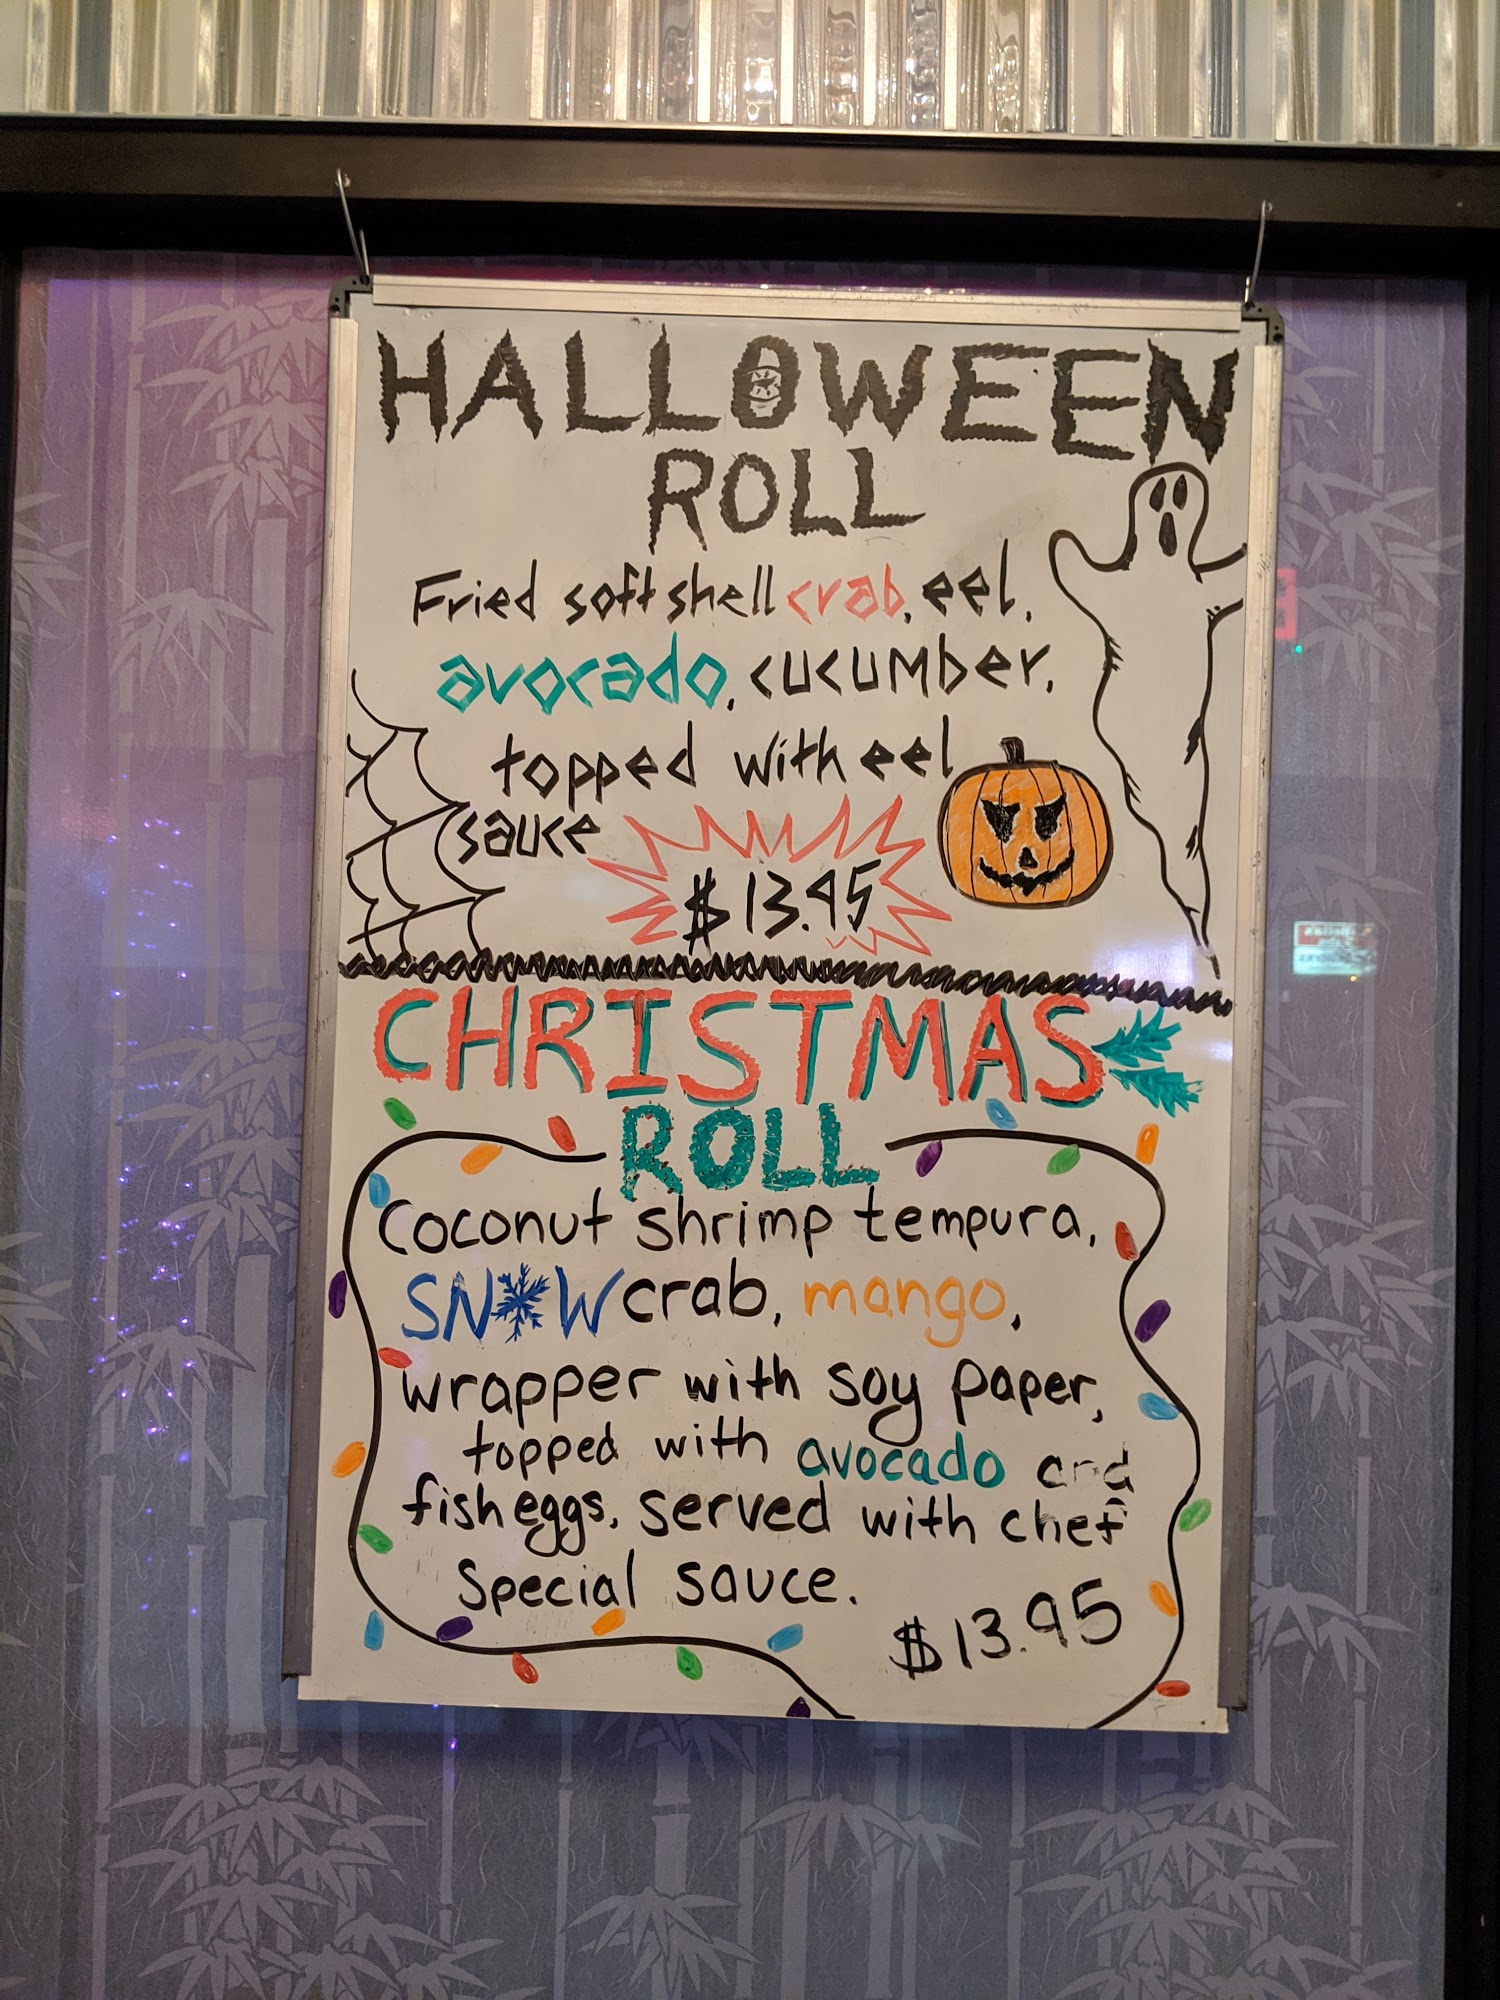 HALLOWEEN
ROLL
Fried soft shell crab, eel,
avocado, cucumber,
topped with eel
sauce
$13.95
CHRISTMAS
ROLL
Coconut shrimp tempura,
SNOW crab, mango,
wrapper with soy paper,
topped with avocado and
fish eggs, served with chef
special sauce.
$13.95